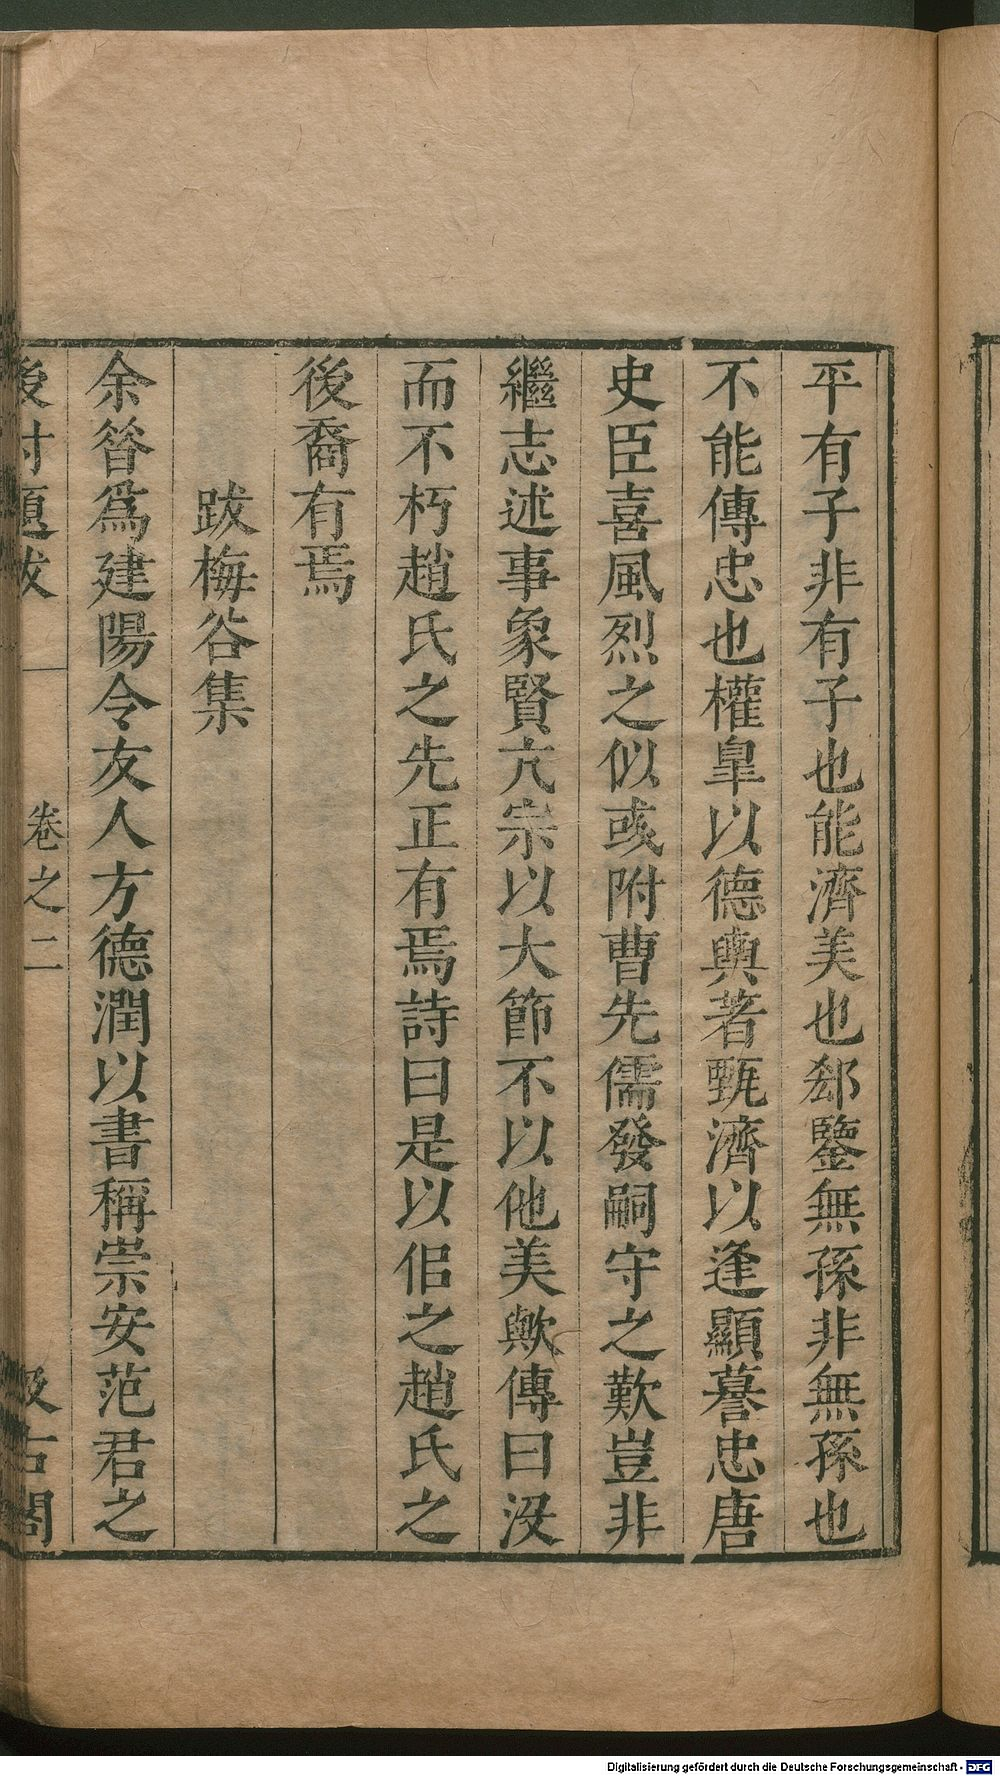 平有子非有子也能濟美也郄鑒無孫非無孫也
不能傳忠也權臯以德輿著甄濟以逢顯蓦忠唐
史臣喜風烈之似或附曹先儒發嗣守之歎豈非
繼志述事象賢亢宗以大節不以他美歟傳曰没
而不朽趙氏之先正有焉詩曰是以佀之趙氏之
後裔有焉
跋梅谷集
余昝爲建陽令友人方德潤以書稱崇安范君之
後村題跋
卷之二
汲古閣
Digitalisierung gefördert durch die Deutsche Forschungsgemeinschaft - DFG